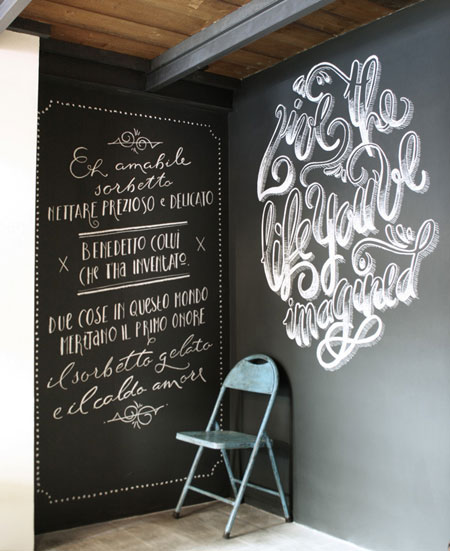 Eh amabile
sorbetto
NETTARE PREZIOSO e DELICATO
BENEDETTO COLUI
CHE T'HA INVENTATO.
DUE COSE IN QUESTO MONDO
MERITANO IL PRIMO ONORE
il sorbetto gelato
e il caldo amore
Live the
life you've
imagined